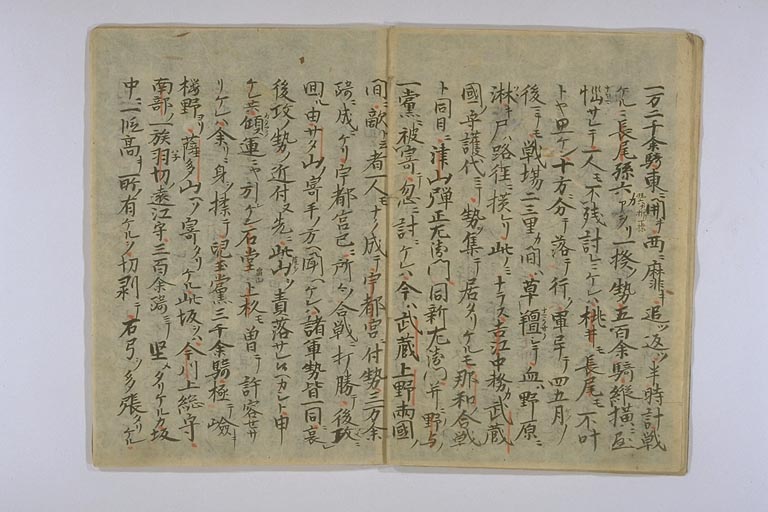 一万二千余騎東ニ開キ西ニ麻キ追ツ返ツ半時計戦
ケルニ長尾孫六カ一揆ノ勢五百余騎縦横ニ
悩サレテ一人モ不残討レニケレハ桃井モ長尾モ不叶
トヤ思ケン十方分テ落テ行ノ軍畢テ四五月ノ
後ニモ戦場二三里カ間ハ草腥シテ血野原ニ
淋キ戸路径ニ横レリ此ノミナラス吉江中務カ武蔵
国ノ守護代ニテ勢ヲ集テ居タリケルモ那和合戦
ト同日ニ津山弾正左衛門同新左衛門并ニ野与ノ
一黨ニ被寄忽ニ討レケレハ今ハ武蔵上野両國ノ
間ニ敵ト云者一人モナク成テ宇都宮ニ付勢三万余
騎ニ成ニケリ宇都宮已ニ所々ノ合戦ニ打勝テ後攻ニ
回ル由サタ山ノ寄手ノ方ヘ聞ヘケレハ諸軍勢皆一同ニ哀
後攻ノ勢ノ近付又先ニ此山ヲ責落サレ候ヘカシト申
ケレ共傾ク運ニヤ引レケン石堂上杉曽テ許容セサ
リケレハ余リニ身ヲ揉テ児玉黨三千余騎極テ嶮キ
桜野ヨリ薩多山ヘソ寄タリケル此坂ヲハ今川上総守
南部ノ一族羽切遠江守三百余騎ニテ堅メタリケルカ坂
中ニ一段高キ所ノ有ケルヲ切剥テ石弓ヲ多張タリケル